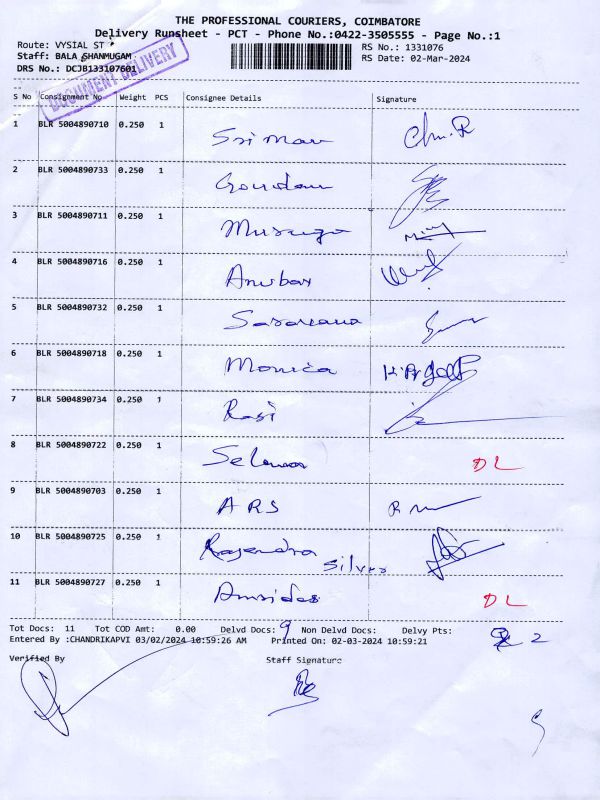 THE PROFESSIONAL COURIERS, COIMBATORE
Delivery Runsheet - PCT - Phone No.:0422-3505555 - Page No.:1
Route: VYSIAL ST RS No.: 1331076
Staff: BALA SHANMUGAM RS Date: 02-Mar-2024
DRS No.: DCJB133107601
DOCUMENT DELIVERY
S No Consignment No Weight PCS Consignee Details Signature
1 BLR 5004890710 0.250 1
2 BLR 5004890733 0.250 1
3 BLR 5004890711 0.250 1
4 BLR 5004890716 0.250 1
5 BLR 5004890732 0.250 1
6 BLR 5004890718 0.250 1 Monica
7 BLR 5004890734 0.250 1 Rasi
8 BLR 5004890722 0.250 1 DL
9 BLR 5004890703 0.250 1 ARS
10 BLR 5004890725 0.250 1 Rajendra Silver
11 BLR 5004890727 0.250 1 DL
Tot Docs: 11 Tot COD Amt: 0.00 Delvd Docs: 9 Non Delvd Docs: Delvy Pts: 2
Entered By :CHANDRIKAPVI 03/02/2024 10:59:26 AM Printed On: 02-03-2024 10:59:21
Verified By Staff Signature